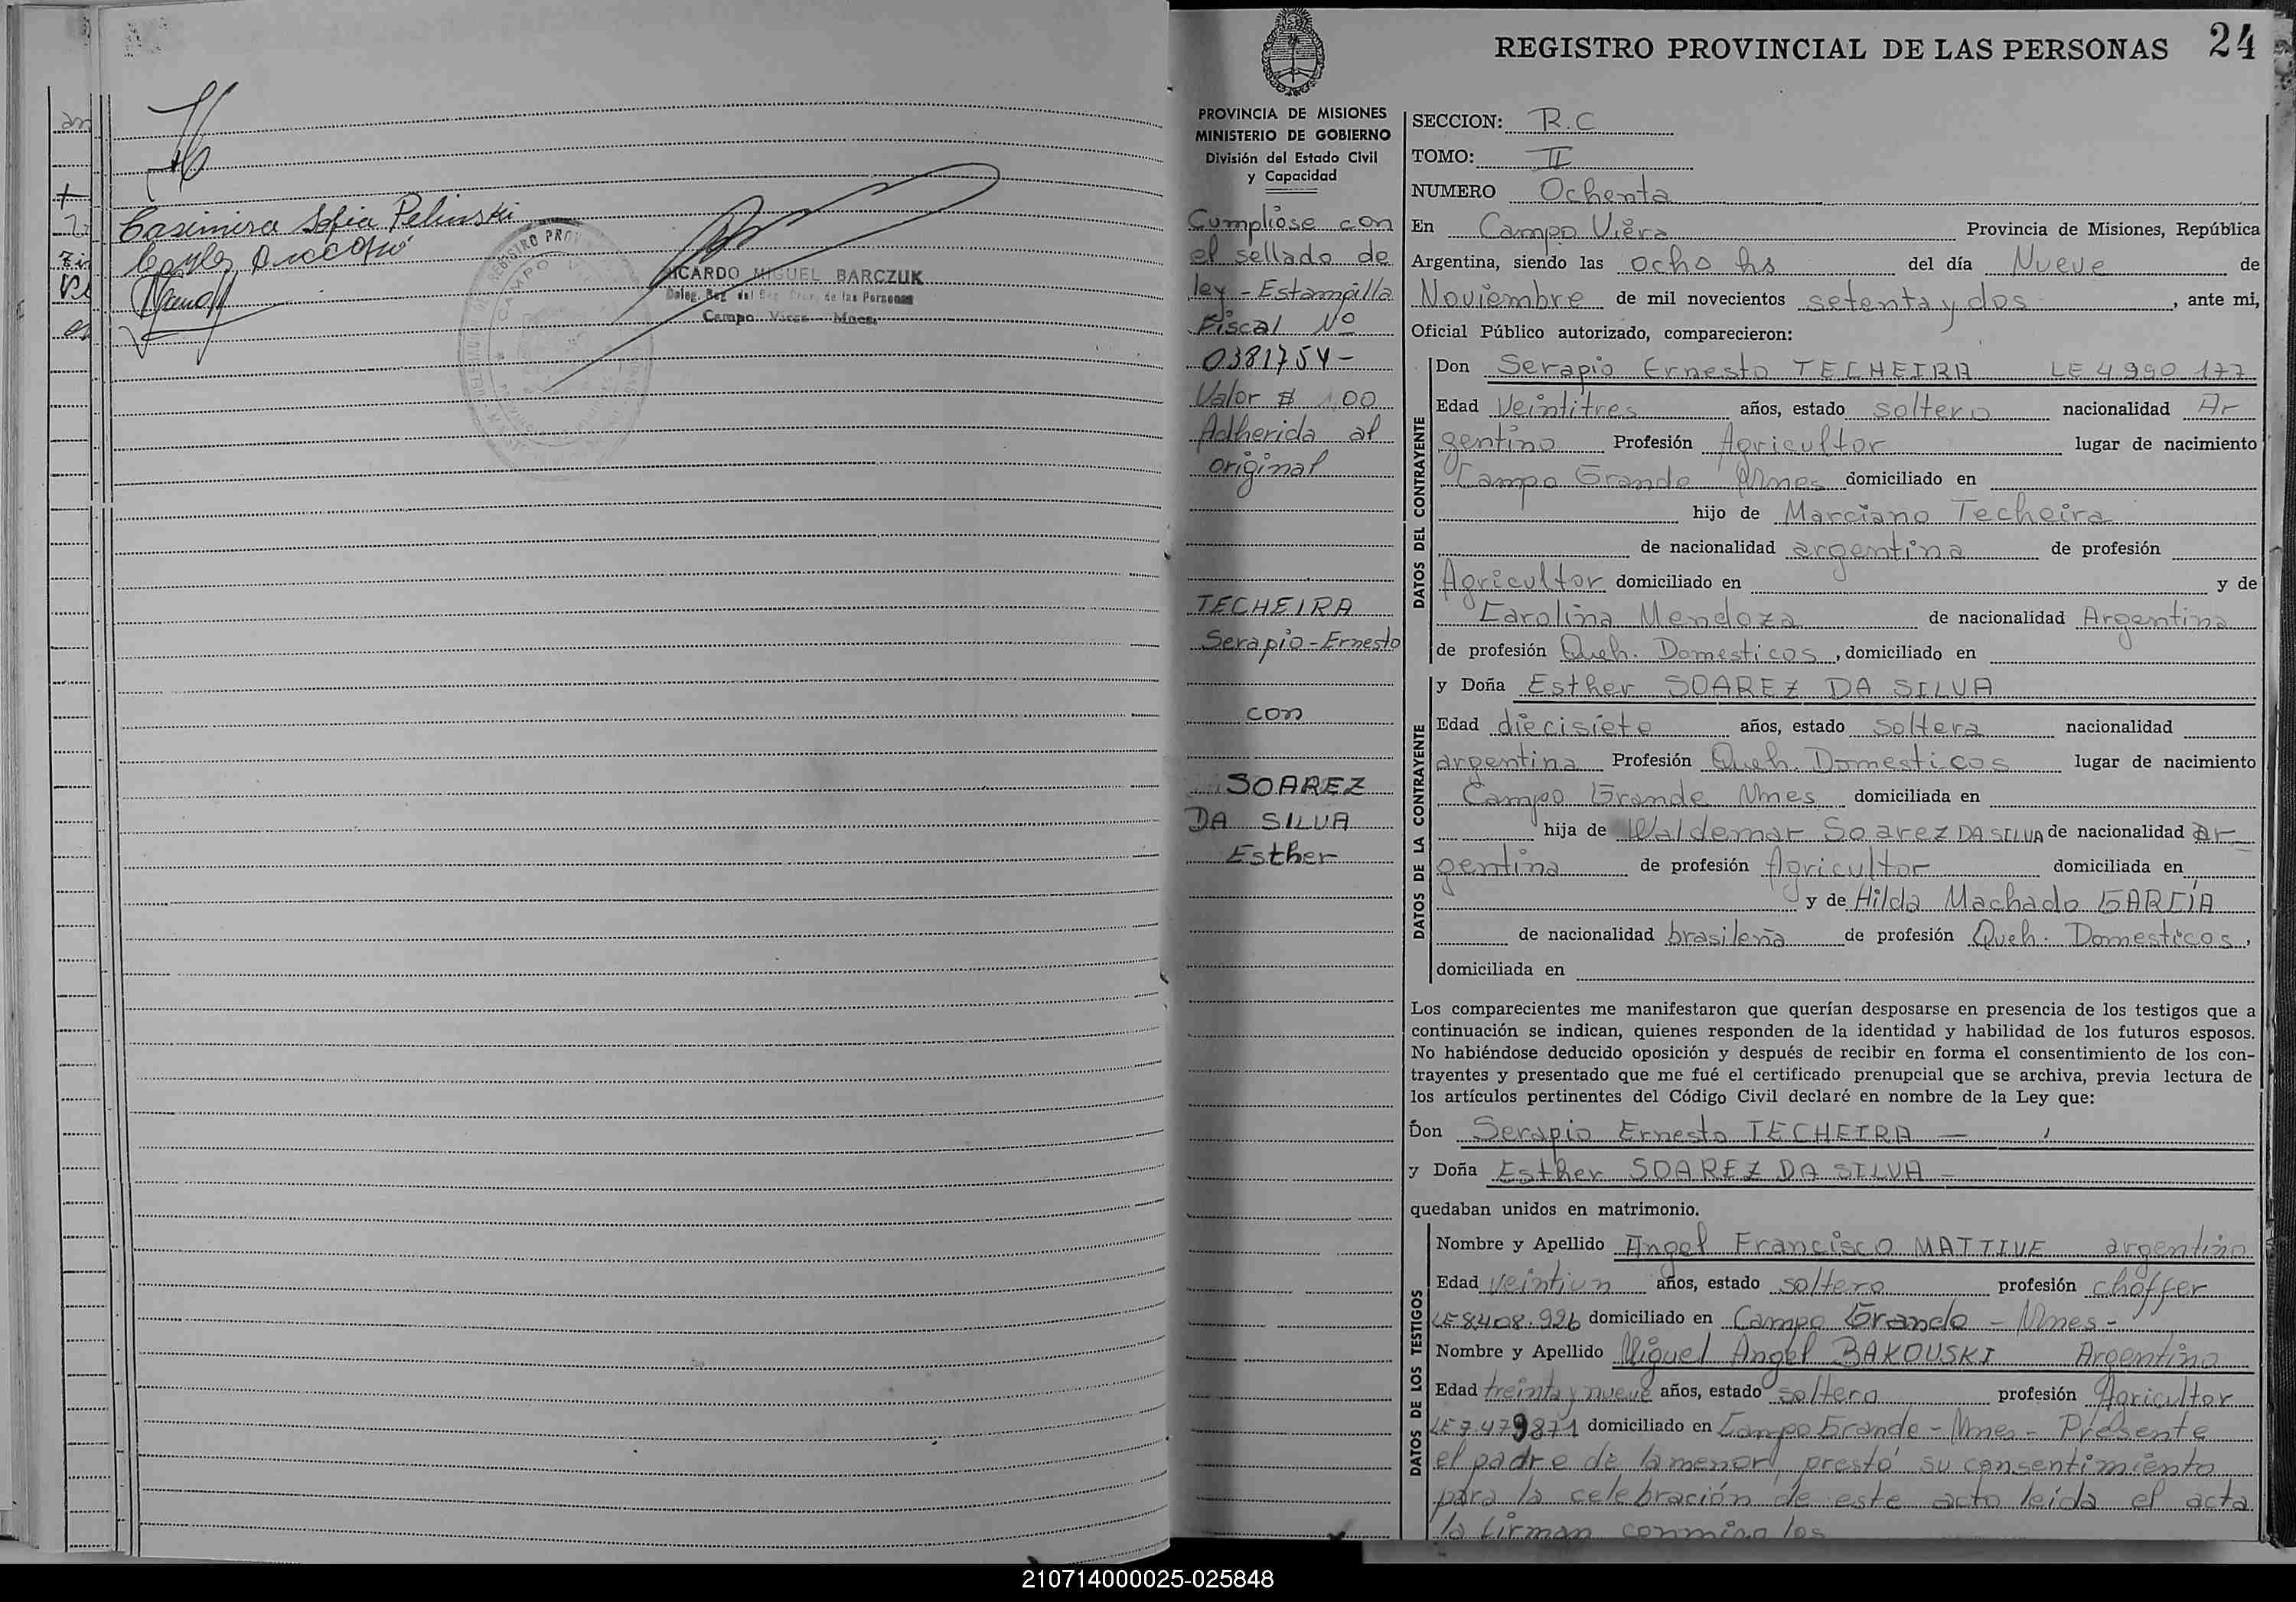 Casimira Sofia Pelinski
RICARDO MIGUEL BARCZUK
Deleg. Reg. del Reg. Prov. de las Personas
Campo Viera Mnes.
REGISTRO PROVINCIAL DE LAS PERSONAS 24
PROVINCIA DE MISIONES
MINISTERIO DE GOBIERNO
División del Estado Civil
y Capacidad
Cumplióse con
el sellado de
ley - Estampilla
Fiscal Nº
0381754-
Valor $ 1,00
Adherida al
original
TECHEIRA
Serapio-Ernesto
con
SOAREZ
DA SILVA
Esther
SECCION: R.C
TOMO: II
NUMERO Ochenta
En Campo Viera Provincia de Misiones, República
Argentina, siendo las ocho hs del día Nueve de
Noviembre de mil novecientos setenta y dos, ante mi,
Oficial Público autorizado, comparecieron:
DATOS DEL CONTRAYENTE
Don Serapio Ernesto TECHEIRA LE 4990 177
Edad Veintitres años, estado soltero nacionalidad Ar
gentino Profesión Agricultor lugar de nacimiento
Campo Grande Mnes domiciliado en
hijo de Marciano Techeira
de nacionalidad argentina de profesión
Agricultor domiciliado en y de
Carolina Mendoza de nacionalidad Argentina
de profesión Queh. Domesticos, domiciliado en
DATOS DE LA CONTRAYENTE
y Doña Esther SOAREZ DA SILVA
Edad diecisiete años, estado soltera nacionalidad
argentina Profesión Queh. Domesticos lugar de nacimiento
Campo Grande Mnes domiciliada en
hija de Waldemar Soarez DA SILVA de nacionalidad Ar
gentina de profesión Agricultor domiciliada en
y de Hilda Machado GARCÍA
de nacionalidad brasileña de profesión Queh. Domesticos,
domiciliada en
Los comparecientes me manifestaron que querían desposarse en presencia de los testigos que a
continuación se indican, quienes responden de la identidad y habilidad de los futuros esposos.
No habiéndose deducido oposición y después de recibir en forma el consentimiento de los con-
trayentes y presentado que me fué el certificado prenupcial que se archiva, previa lectura de
los artículos pertinentes del Código Civil declaré en nombre de la Ley que:
Don Serapio Ernesto TECHEIRA —
y Doña Esther SOAREZ DA SILVA -
quedaban unidos en matrimonio.
DATOS DE LOS TESTIGOS
Nombre y Apellido Angel Francisco MATTIVE argentino
Edad veintiun años, estado soltero profesión choffer
LE 8.408.926 domiciliado en Campo Grande - Mnes -
Nombre y Apellido Miguel Angel BAKOUSKI Argentino
Edad treinta y nueve años, estado soltero profesión Agricultor
LE 7.479871 domiciliado en Campo Grande - Mnes - Presente
el padre de la menor, prestó su consentimiento
para la celebración de este acto leída el acta
la firman conmigo los
210714000025-025848